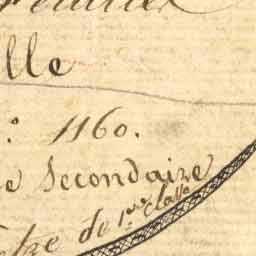 lle
: 1160.
e Secondaire
tre de 1.re classe